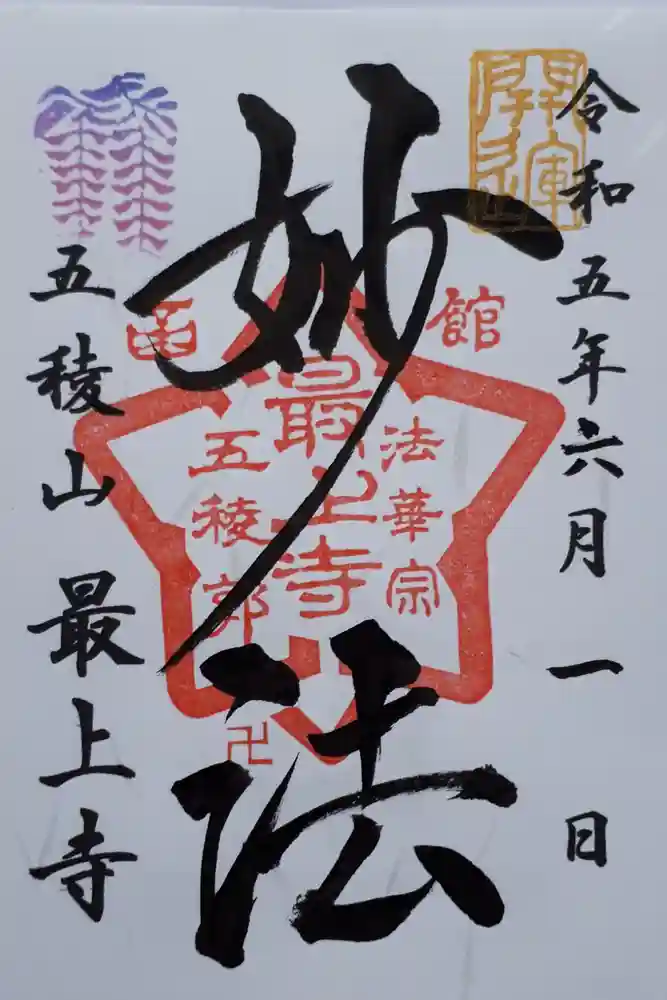 開運
令和五年六月一日
妙法
函館
法華宗
最上寺
五稜郭
卍
五稜山 最上寺